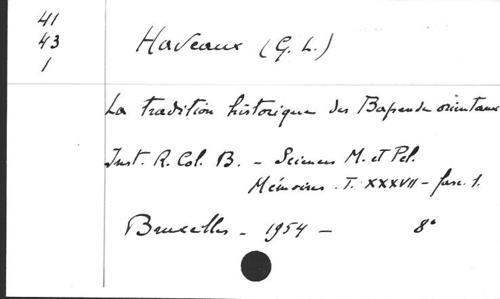 41
43
1
Haveaux (G. L.)
La tradition historique des Bapende orientaux
Inst. R. Col. B. - Sciences M. et Pol.
Mémoires. T. XXXVII - fasc. 1.
Bruxelles - 1954 - 8°